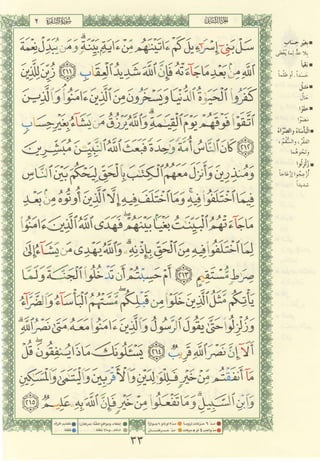 سُورَةُ الْبَقَرَةِ ٢
سَلْ بَنِىٓ إِسْرَٰٓءِيلَ كَمْ ءَاتَيْنَٰهُم مِّنْ ءَايَةٍۭ بَيِّنَةٍ ۗ وَمَن يُبَدِّلْ نِعْمَةَ
ٱللَّهِ مِنۢ بَعْدِ مَا جَآءَتْهُ فَإِنَّ ٱللَّهَ شَدِيدُ ٱلْعِقَابِ ٢١١ زُيِّنَ لِلَّذِينَ
كَفَرُوا۟ ٱلْحَيَوٰةُ ٱلدُّنْيَا وَيَسْخَرُونَ مِنَ ٱلَّذِينَ ءَامَنُوا۟ ۘ وَٱلَّذِينَ
ٱتَّقَوْا۟ فَوْقَهُمْ يَوْمَ ٱلْقِيَٰمَةِ ۗ وَٱللَّهُ يَرْزُقُ مَن يَشَآءُ بِغَيْرِ حِسَابٍ
٢١٢ كَانَ ٱلنَّاسُ أُمَّةً وَٰحِدَةً فَبَعَثَ ٱللَّهُ ٱلنَّبِيِّـۧنَ مُبَشِّرِينَ
وَمُنذِرِينَ وَأَنزَلَ مَعَهُمُ ٱلْكِتَٰبَ بِٱلْحَقِّ لِيَحْكُمَ بَيْنَ ٱلنَّاسِ
فِيمَا ٱخْتَلَفُوا۟ فِيهِ ۚ وَمَا ٱخْتَلَفَ فِيهِ إِلَّا ٱلَّذِينَ أُوتُوهُ مِنۢ بَعْدِ
مَا جَآءَتْهُمُ ٱلْبَيِّنَٰتُ بَغْيًۢا بَيْنَهُمْ ۖ فَهَدَى ٱللَّهُ ٱلَّذِينَ ءَامَنُوا۟
لِمَا ٱخْتَلَفُوا۟ فِيهِ مِنَ ٱلْحَقِّ بِإِذْنِهِۦ ۗ وَٱللَّهُ يَهْدِى مَن يَشَآءُ إِلَىٰ
صِرَٰطٍ مُّسْتَقِيمٍ ٢١٣ أَمْ حَسِبْتُمْ أَن تَدْخُلُوا۟ ٱلْجَنَّةَ وَلَمَّا
يَأْتِكُم مَّثَلُ ٱلَّذِينَ خَلَوْا۟ مِن قَبْلِكُم ۖ مَّسَّتْهُمُ ٱلْبَأْسَآءُ وَٱلضَّرَّآءُ
وَزُلْزِلُوا۟ حَتَّىٰ يَقُولَ ٱلرَّسُولُ وَٱلَّذِينَ ءَامَنُوا۟ مَعَهُۥ مَتَىٰ نَصْرُ ٱللَّهِ ۗ
أَلَآ إِنَّ نَصْرَ ٱللَّهِ قَرِيبٌ ٢١٤ يَسْـَٔلُونَكَ مَاذَا يُنفِقُونَ ۖ قُلْ
مَآ أَنفَقْتُم مِّنْ خَيْرٍ فَلِلْوَٰلِدَيْنِ وَٱلْأَقْرَبِينَ وَٱلْيَتَٰمَىٰ وَٱلْمَسَٰكِينِ
وَٱبْنِ ٱلسَّبِيلِ ۗ وَمَا تَفْعَلُوا۟ مِنْ خَيْرٍ فَإِنَّ ٱللَّهَ بِهِۦ عَلِيمٌ ٢١٥
٣٣